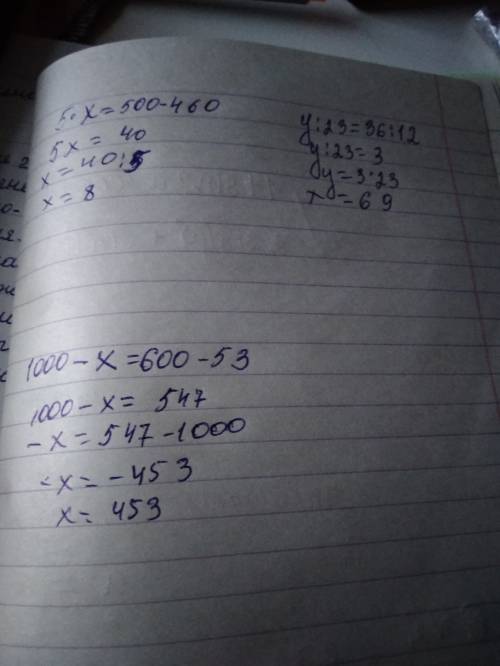 5·x=500-460
5x= 40
x=40:5
x= 8
y:23=36:12
y:23=3
y=3·23
x=69
1000-x=600-53
1000-x= 547
-x=547-1000
-x=-453
x= 453